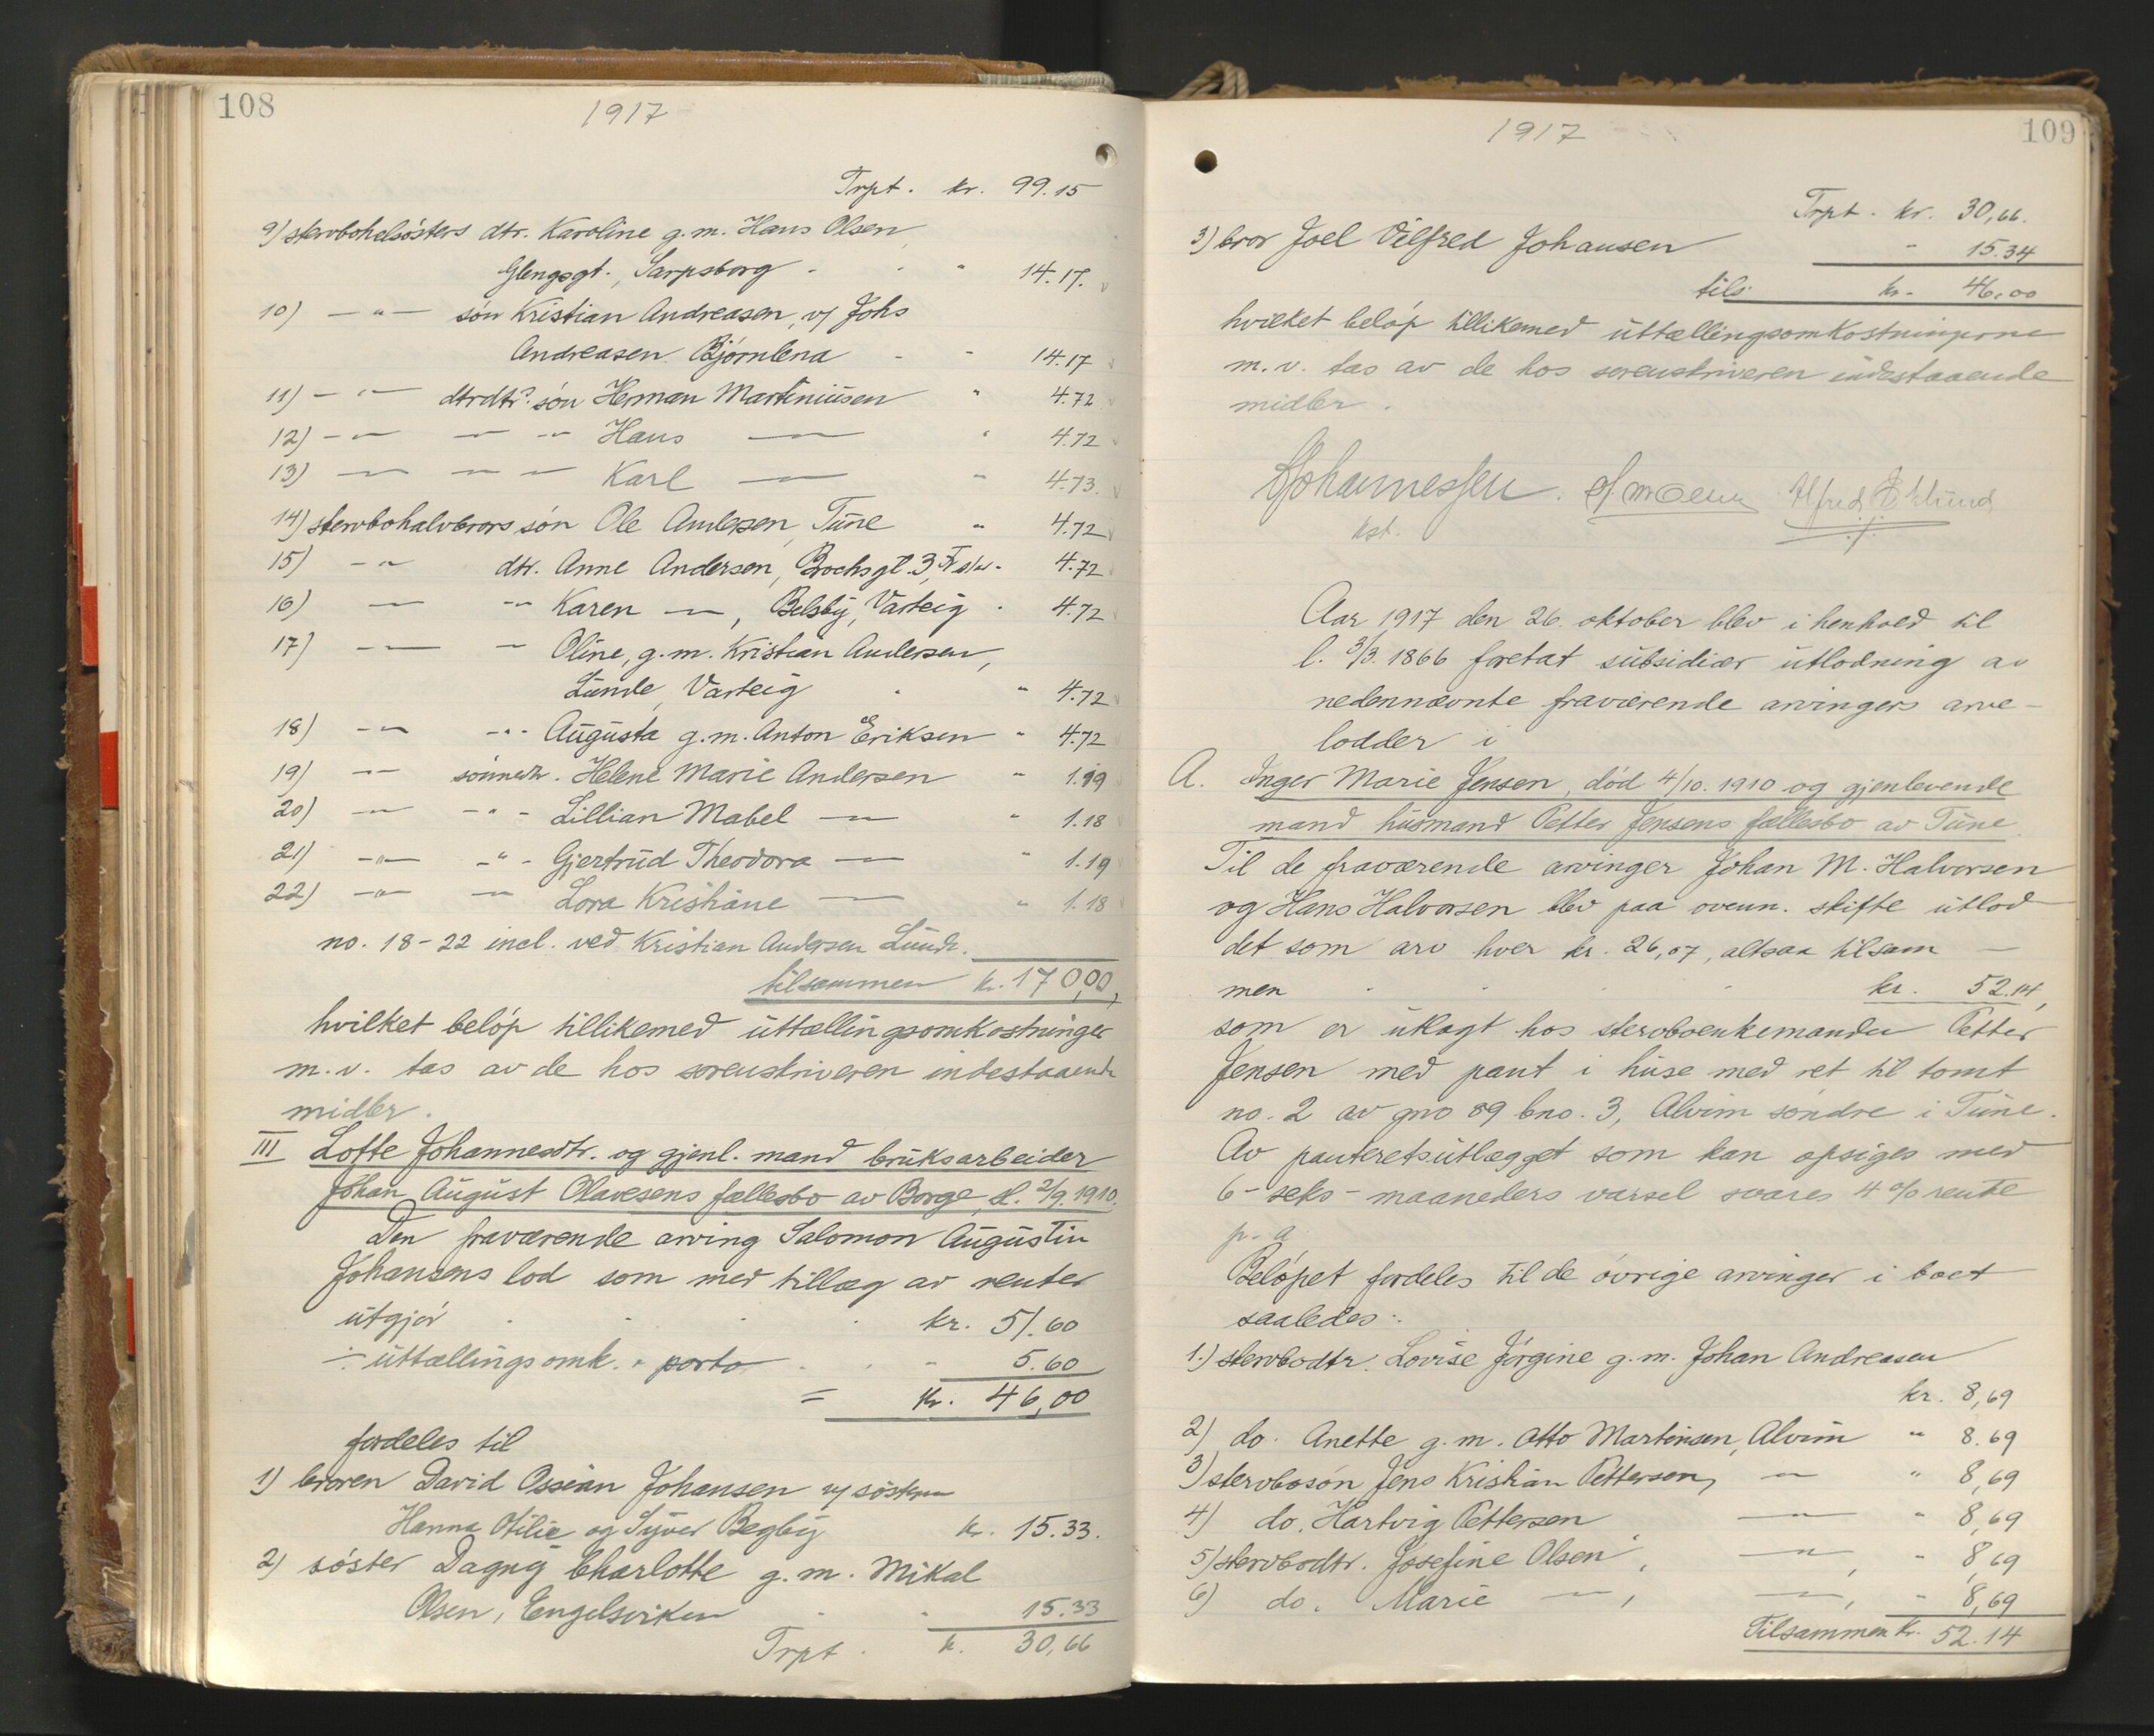 108
1917
Trpt. kr. 99.15
9) stervbohelsøsters dtr. Karoline g.m. Hans Olsen,
Glengsgt., Sarpsborg - - " 14.17.
10) — " — søn Kristian Andreasen, v/ Johs
Andreasen Bjørnlena - - 14.17
11) — " — dtrdtrs. søn Herman Martiniusen " 4.72
12) — " — — " — — " — Hans — " — " 4.72
13) — " — — " — — " — Karl — " — " 4.73.
14) stervbohalvbrors søn Ole Andersen, Tune " 4.72
15) — " — dtr. Anne Andersen, Brochsgt. 3, Fr.stad. 4.72
16) — " — — " — Karen — " —, Belsby, Varteig . 4.72
17) — " — — " — Oline, g.m. Kristian Andersen,
Lunde, Varteig " " 4.72
18) — " — — " — Augusta g.m. Anton Eriksen " 4.72
19) — " — sønnedtr. Helene Marie Andersen " 1.19
20) — " — — " — Lillian Mabel — " — " 1.18
21) — " — — " — Gjertrud Theodora — " — " 1.19
22) — " — — " — Lora Kristiane — " — " 1.18
no. 18-22 incl. ved Kristian Andersen Lunde.
tilsammen kr. 170,00,
hvilket beløp tillikemed uttællingsomkostninger
m.v. tas av de hos sorenskriveren indestaaende
midler.
III Lotte Johannesdtr. og gjenl. mand bruksarbeider
Johan August Olavesens fællesbo av Borge, sl. 2/9. 1910.
Den fraværende arving Salomon Augustin
Johansens lod som med tillæg av renter
utgjør . . . . kr. 51.60
÷ uttællingsomk. + porto . . " 5.60
= kr. 46,00
fordeles til
1) broren David Ossian Johansen v/ søsteren
Hanna Otilie og Syver Begby kr. 15.33.
2) søster Dagny Charlotte g.m. Mikal
Olsen, Engelsviken . " 15.33
Trpt. k. 30,66
1917
109
Trpt. kr. 30,66.
3) bror Joel Vilfred Johansen " 15.34
tils. kr. 46,00
hvilket beløp tillikemed uttællingsomkostningerne
m.v. tas av de hos sorenskriveren indestaaende
midler.
Johannessen. Alfred Eklund
kst.
Aar 1917 den 26. oktober blev i henhold til
l. 3/3. 1866 foretat subsidiær utlodning av
nedennævnte fraværende arvingers arve-
lodder i
A. Inger Marie Jensen, død 4/10. 1910 og gjenlevende
mand husmand Petter Jensens fællesbo av Tune.
Til de fraværende arvinger Johan M. Halvorsen
og Hans Halvorsen blev paa ovenn. skifte utlod-
det som arv hver kr. 26,07, altsaa tilsam-
men . . . . kr. 52.14,
som er utlagt hos stervboenkemanden Petter
Jensen med pant i huse med ret til tomt
no. 2 av gno 89 bno. 3, Alvim søndre i Tune.
Av panteretsutlægget som kan opsiges med
6 - seks - maaneders varsel svares 4 % rente
p. a.
Beløpet fordeles til de øvrige arvinger i boet
saaledes:
1.) stervbodtr. Lovise Jørgine g.m. Johan Andreasen
kr. 8,69
2) do. Anette g.m. Otto Martinsen, Alvim " 8.69
3) stervbosøn Jens Kristian Pettersen, — " — " 8,69
4) do. Hartvig Pettersen — " — " 8,69
5) stervbodtr. Josefine Olsen, — " —, " 8,69
6) do. Marie — " —, — " —, " 8,69
Tilsammen kr. 52.14